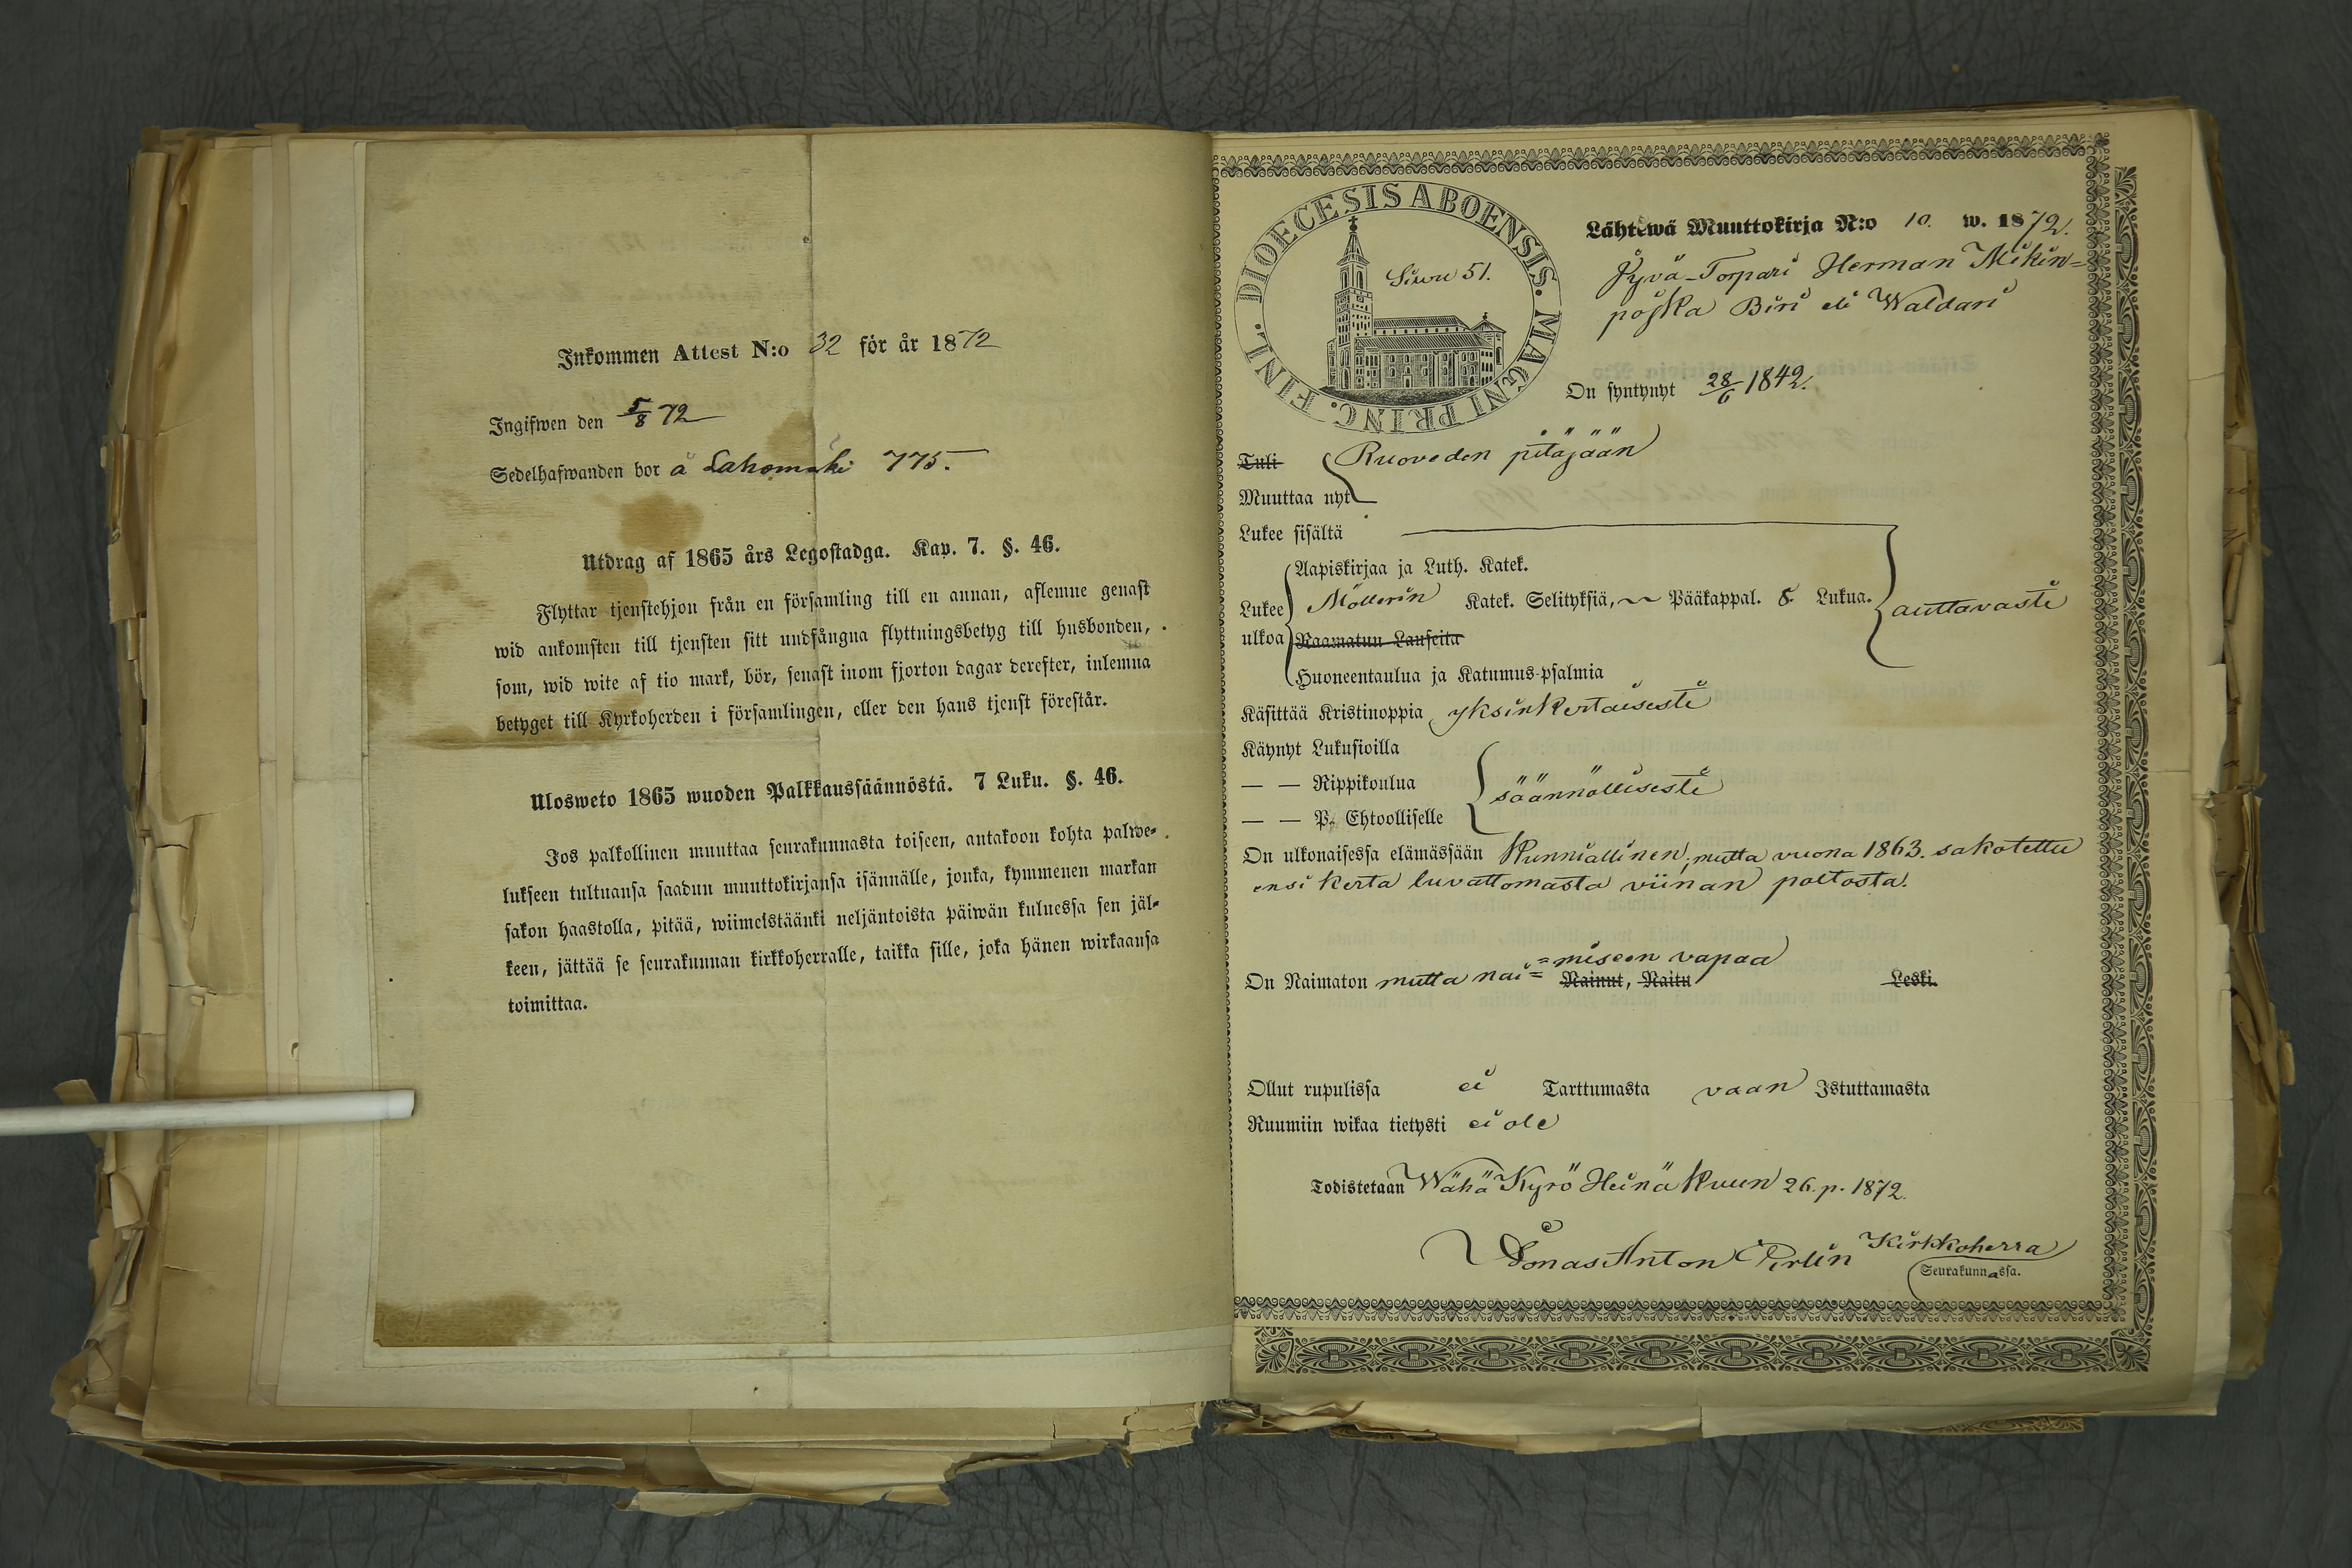 Inkommen Attest N:o 32 för år 1872
Ingifwen den 5/8 72
Sedelhafwanden bor å Lahomäki 775.
Utdrag af 1865 års Legostadga. Kap. 7. §. 46.
Flyttar tjenstehjon från en församling till en annan, aflemne genast
wid ankomsten till tjensten sitt undfångna flyttningsbetyg till husbonden,
som, wid wite af tio mark, bör, senast inom fjorton dagar derefter, inlemna
betyget till Kyrkoherden i församlingen, eller den hans tjenst förestår.
Ulosweto 1865 wuoden Palkkaussäännöstä. 7 Luku. §. 46.
Jos palkollinen muuttaa seurakunnasta toiseen, antakoon kohta palwe-
lukseen tultuansa saadun muuttokirjansa isännälle, jonka, kymmenen markan
sakon haastolla, pitää, wiimeistäänki neljäntoista päiwän kuluessa sen jäl-
keen, jättää se seurakunnan kirkkoherralle, taikka sille, joka hänen wirkaansa
toimittaa.
DIOECESIS ABOENSIS. MAGNI PRINC. FINL.
Siwu 51.
Lähtewä Muuttokirja N:o 10. w. 1872.
Jyvä-Torpari Herman Mikin=
pojka Biri eli Waldari
On syntynyt 28/6 1842.
Tuli
Ruoveden pitäjään
Muuttaa nyt
Lukee sisältä
Aapiskirjaa ja Luth. Katek.
Lukee ulkoa
Möllerin Katek. Selityksiä, Pääkappal. 8. Lukua. auttavasti
Raamatun Lauseita
Huoneentaulua ja Katumus-psalmia
Käsittää Kristinoppia yksinkertaisesti
Käynyt Lukusioilla
— — Rippikoulua säännöllisesti
— — P. Ehtoolliselle
On ulkonaisessa elämässään Kunniallinen, mutta vuona 1863. sakotettu
ensi kerta luvattomasta viinan poltosta.
On Naimaton mutta nai= =miseen vapaa Nainut, Naitu Leski.
Ollut rupulissa ei Tarttumasta vaan Istuttamasta
Ruumiin wikaa tietysti ei ole
Todistetaan Wähä Kyrö Heinä Kuun 26. p. 1872.
Jonas Anton Perlin Kirkkoherra
Seurakunnassa.